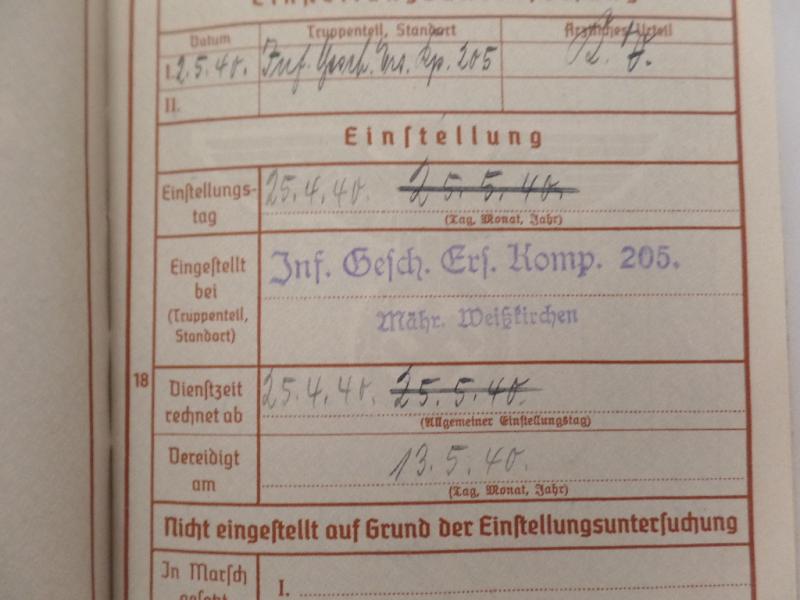 Einstellungsuntersuchung
Datum Truppenteil, Standort Ärztliches Urteil
I. 2.5.40. Inf. Gesch. Ers. Kp. 205
II.
Einstellung
Einstellungs- 25.4.40. 25.5.40.
tag (Tag, Monat, Jahr)
Eingestellt Inf. Gesch. Ers. Komp. 205.
bei
(Truppenteil, Mähr. Weißkirchen
Standort)
18
Dienstzeit 25.4.40. 25.5.40.
rechnet ab (Allgemeiner Einstellungstag)
Vereidigt 13.5.40.
am (Tag, Monat, Jahr)
Nicht eingestellt auf Grund der Einstellungsuntersuchung
In Marsch I.
gesetzt